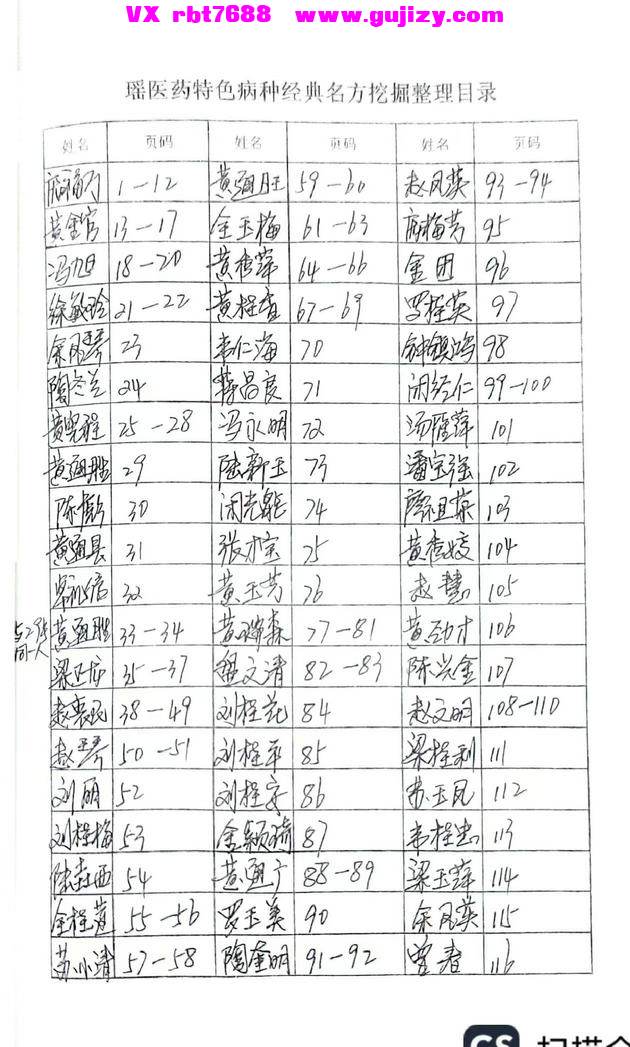 VX rbt7688 www.gujizy.com
瑶医药特色病种经典名方挖掘整理目录
姓名 页码 姓名 页码 姓名 页码
1-12 黄通旺 59-60 赵凤英 93-94
黄金官 13-17 金玉梅 61-63 梅芳 95
冯旭 18-20 黄杏萍 64-66 金团 96
徐敏玲 21-22 黄桂香 67-69 罗桂英 97
余凤琴 23 韦仁海 70 98
陶冬兰 24 蒋昌良 71 闭经仁 99-100
25-28 冯永明 72 汤雁萍 101
黄通胜 29 陆新玉 73 潘宝强 102
陈 30 74 祖荣 103
黄通县 31 张才宝 75 黄杏姣 104
32 黄玉芳 76 赵慧 105
与29页同一人 黄通胜 33-34 黄瑞森 77-81 黄劲才 106
梁正 35-37 盘文清 82-83 陈兴金 107
赵 民 38-49 刘桂花 84 赵文明 108-110
赵琴 50-51 刘桂平 85 梁桂利 111
刘丽 52 刘桂安 86 苏玉凤 112
刘桂梅 53 金颖琦 87 韦桂忠 113
54 黄通广 88-89 梁玉萍 114
金桂 55-56 罗玉美 90 余凤英 115
苏小清 57-58 陶奎明 91-92 曾春 116
CS 扫描全